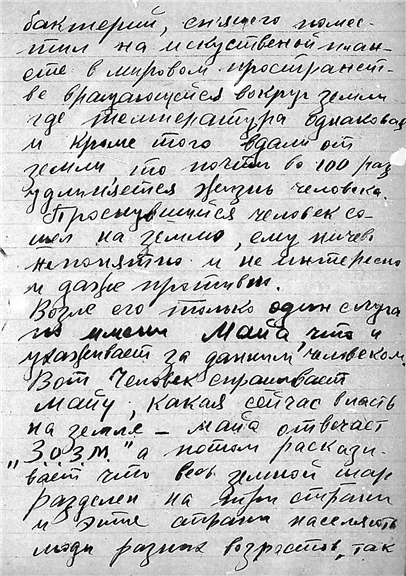 бактерий, спящего помес-
тил на искуственой план-
ете в мировом пространст-
ве вращающейся вокруг земли
где температура однаковая
и кроме того вдали от
земли, то почти во 100 раз
удлиняется жизнь человека.
Проснувшийся человек со-
шел на землю, ему ничево
непонятно и не интересно
и даже противно.
Возле его только один слуга
по имени Майа, что и
ухаживает за данным человеком.
Вот Человек спрашивает
Майу, какая сейчас власть
на земле – Майа отвечает
"З.О.З.Т." а потом расказы-
вает что весь земной шар
разделен на три страны
и эти страны населяють
люди разних возрастов, так